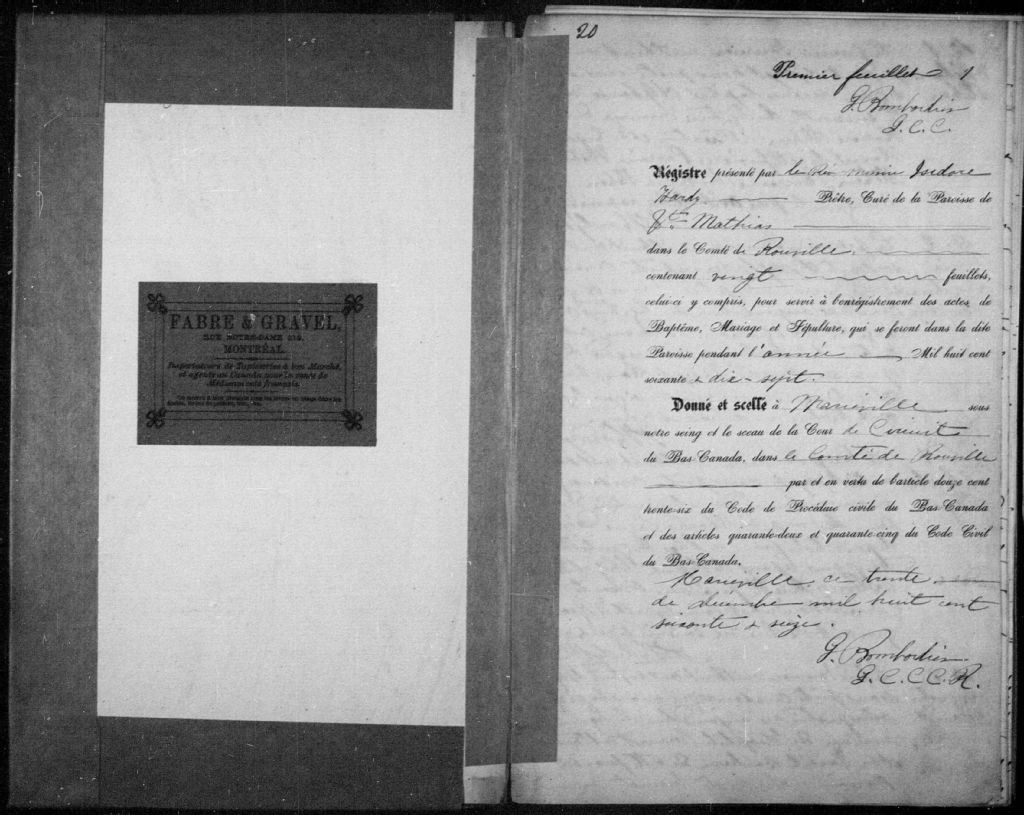 FABRE & GRAVEL,
RUE NOTRE-DAME 219,
MONTRÉAL.
Importateurs de Tapisseries à bon Marché,
et agents au Canada pour la vente de
20
Premier feuillet 1
G. Bombardier
G. C. C.
Régistre présenté par le Isidore
Hardy Prêtre, Curé de la Paroisse de
St. Mathias
dans le Comté de Rouville
contenant vingt feuillets,
celui-ci y compris, pour servir à l'enrégistrement des actes de
Baptême, Mariage et Sépulture, qui se feront dans la dite
Paroisse pendant l'année Mil huit cent
soixante & dix-sept.
Donné et scellé à Marieville sous
notre seing et le sceau de la Cour de Circuit
du Bas-Canada, dans le Comté de Rouville
par et en vertu de l'article douze cent
trente-six du Code de Procédure civile du Bas-Canada
et des articles quarante-deux et quarante-cinq du Code Civil
du Bas-Canada.
Marieville, ce trente
de décembre mil huit cent
soixante & seize.
G. Bombardier
G. C. C. C. R.